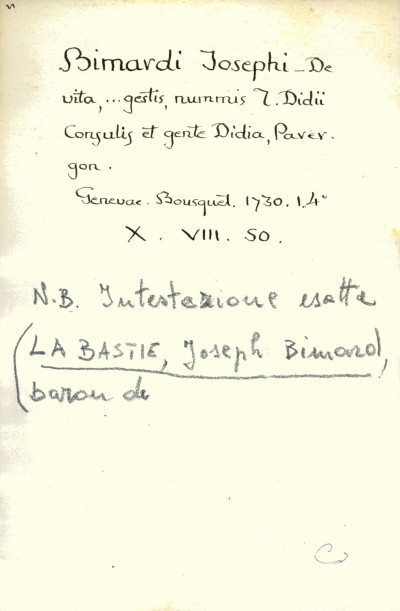 Bimardi Josephi - De
vita, ... gestis, nummis T. Didii
Consulis et gente Didia, Parer-
gon.
Genevae. Bousquet. 1730. 1.4°
X. VIII. 50.
N.B. Intestazione esatta
(LA BASTIE, Joseph Bimard,
baron de
C